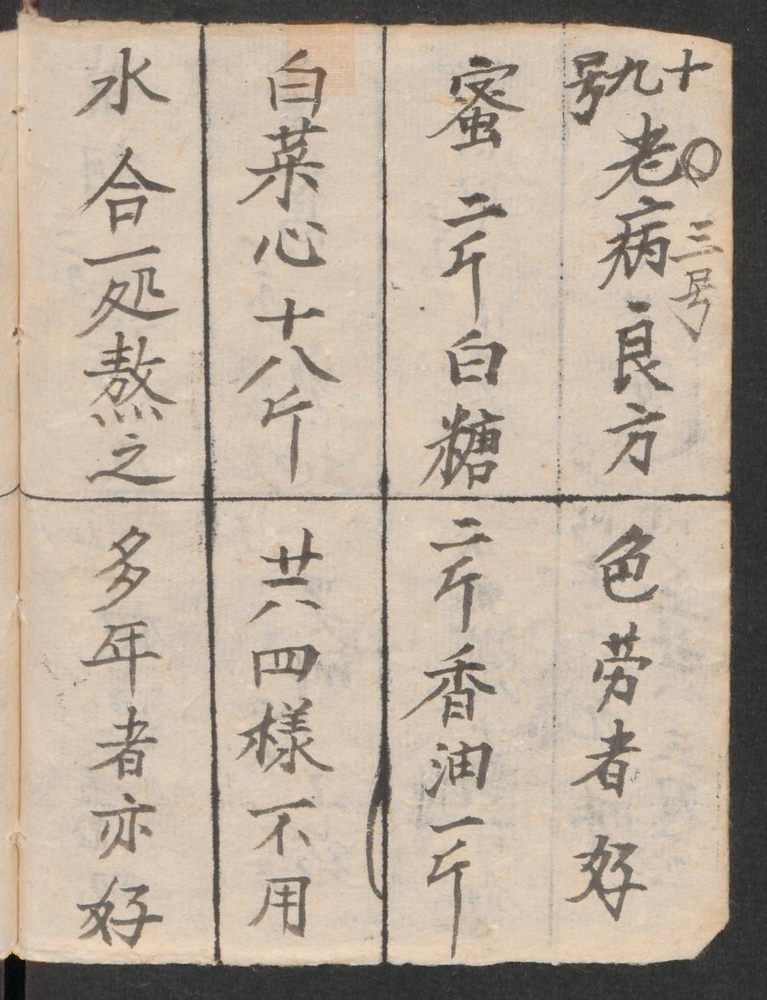 十九号
〇三号
老病良方 色劳者好
蜜二斤白糖 二斤香油一斤
白菜心十八斤 共四樣不用
水合一処熬之 多年者亦好